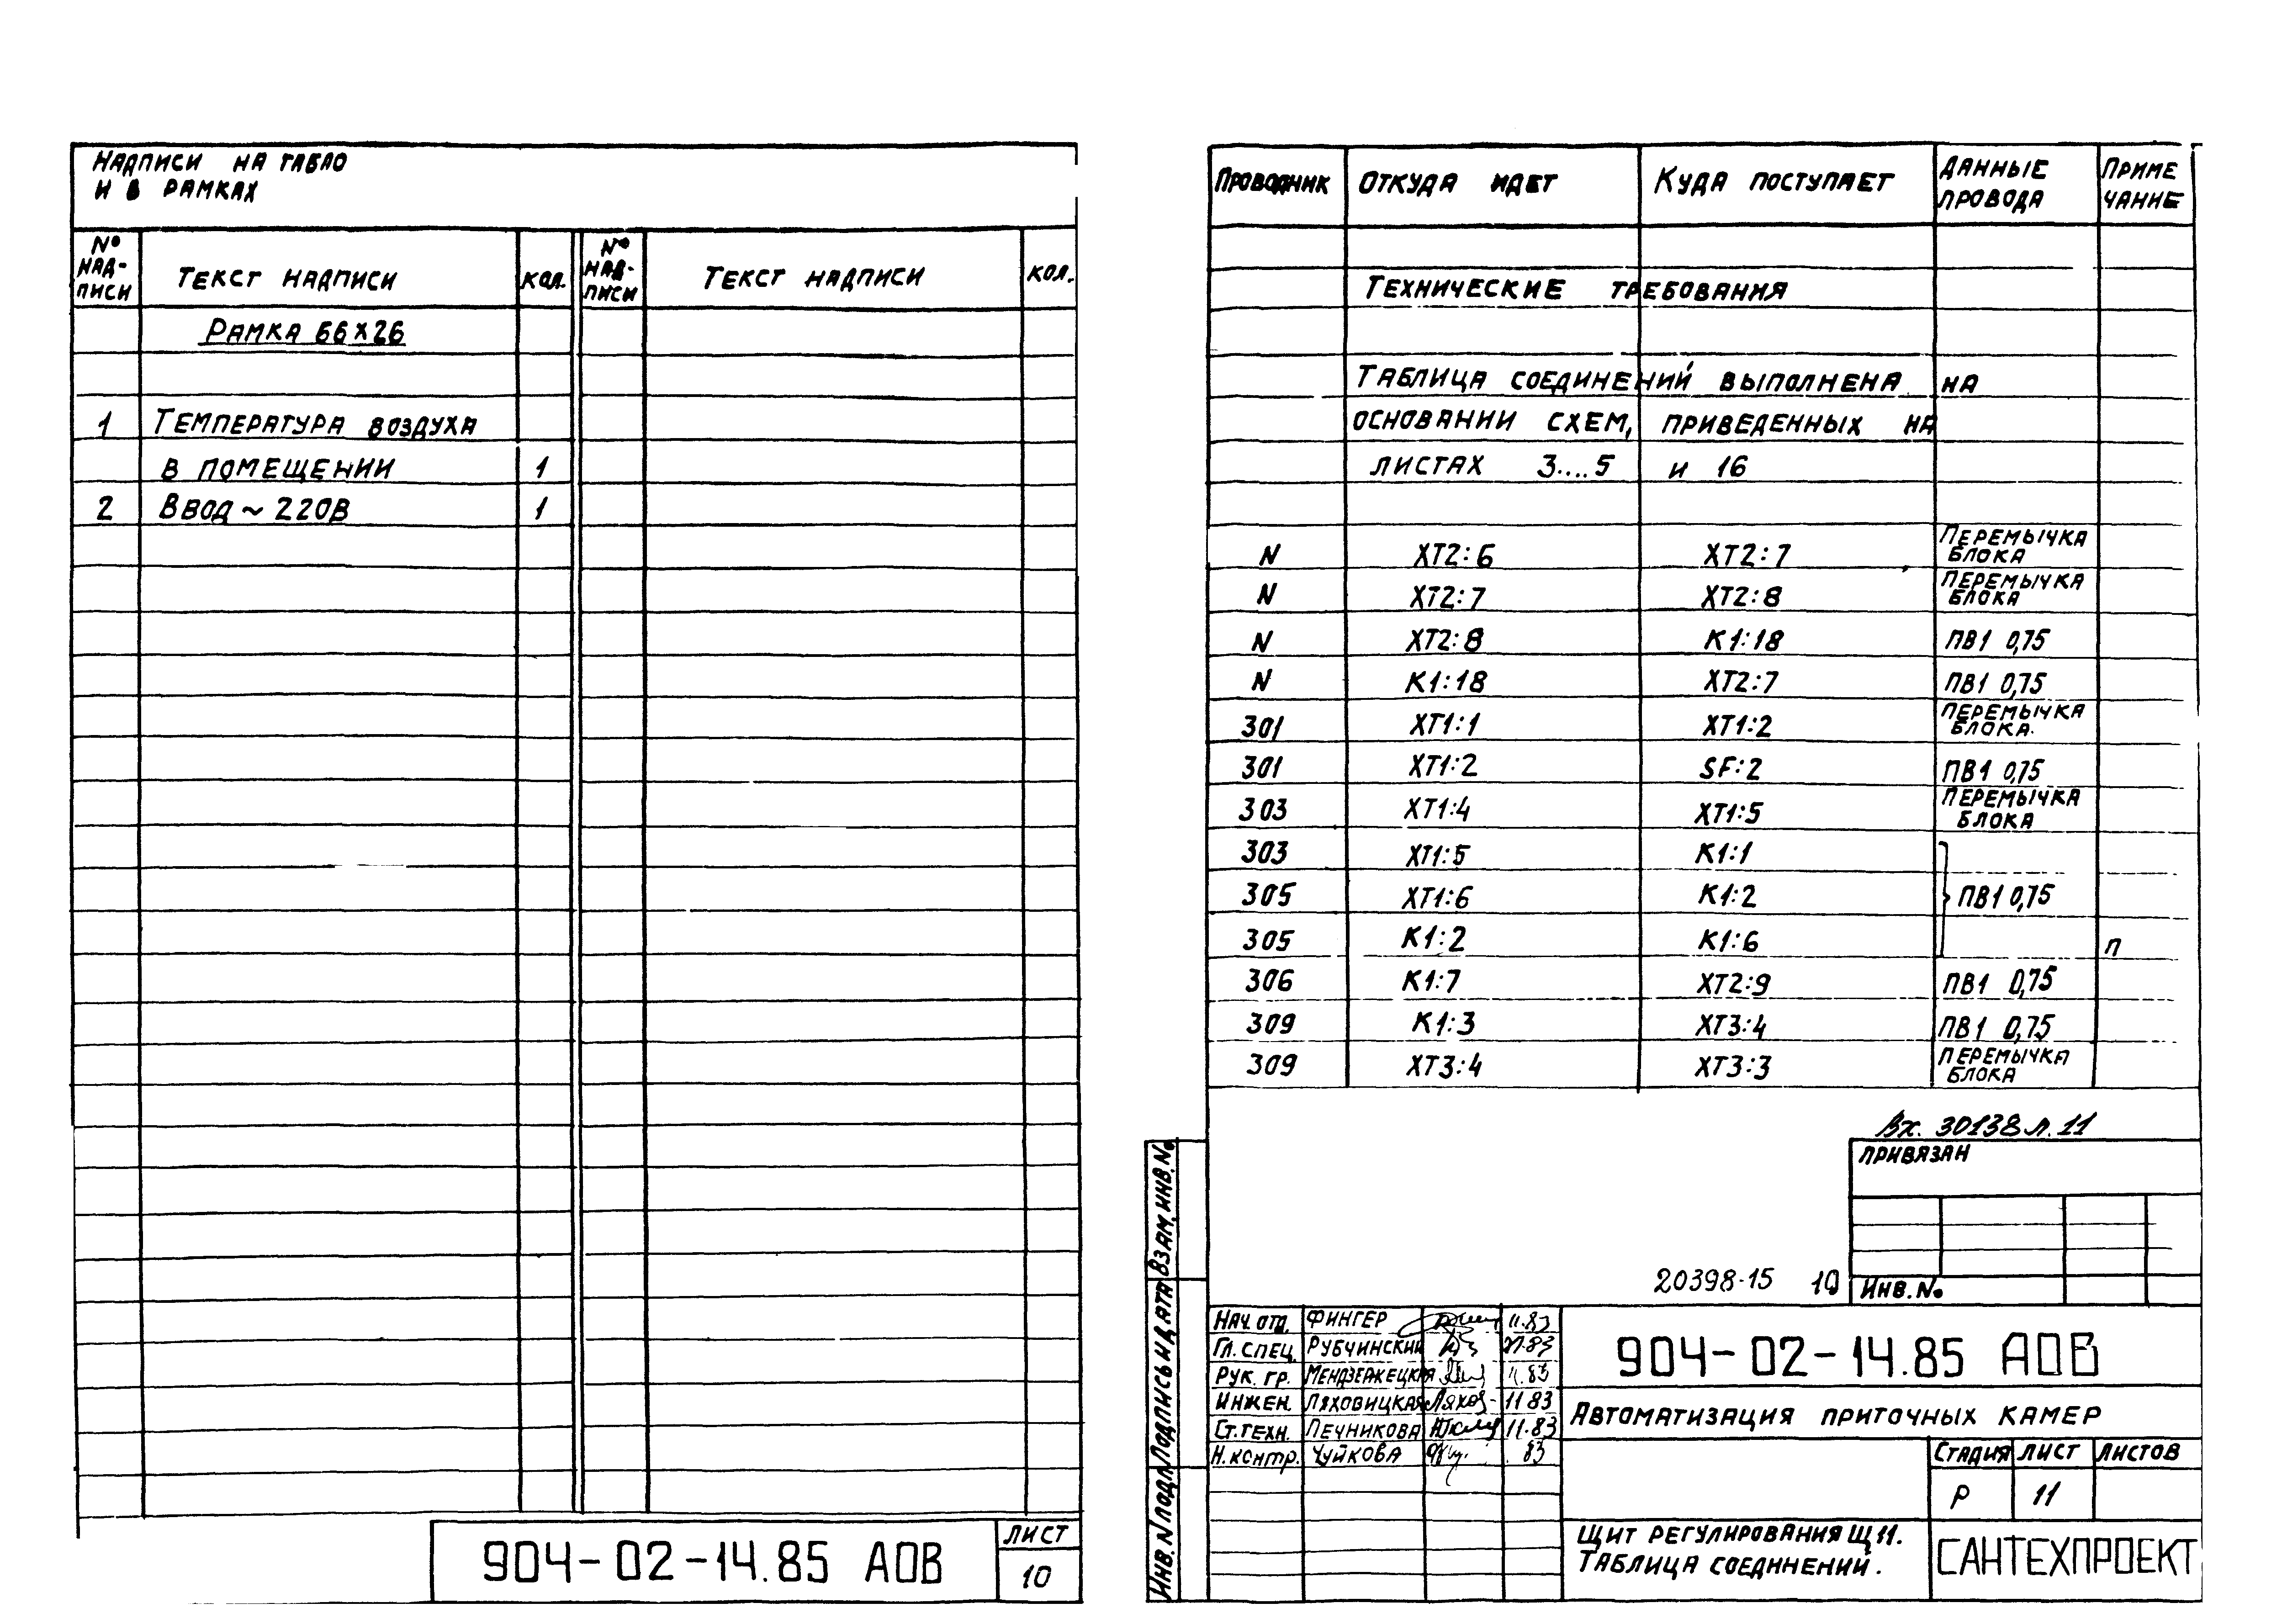 НАДПИСИ НА ТАБЛО
И В РАМКАХ
№ НАД-ПИСИ ТЕКСТ НАДПИСИ КОЛ. № НАД-ПИСИ ТЕКСТ НАДПИСИ КОЛ.
РАМКА 66Х26
1 ТЕМПЕРАТУРА ВОЗДУХА
В ПОМЕЩЕНИИ 1
2 ВВОД ~ 220В 1
904-02-14.85 АОВ
ЛИСТ
10
ПРОВОДНИК ОТКУДА ИДЕТ КУДА ПОСТУПАЕТ ДАННЫЕ ПРОВОДА ПРИМЕЧАНИЕ
ТЕХНИЧЕСКИЕ ТРЕБОВАНИЯ
ТАБЛИЦА СОЕДИНЕНИЙ ВЫПОЛНЕНА НА
ОСНОВАНИИ СХЕМ, ПРИВЕДЕННЫХ НА
ЛИСТАХ 3....5 И 16
N ХТ2:6 ХТ2:7 ПЕРЕМЫЧКА БЛОКА
N ХТ2:7 ХТ2:8 ПЕРЕМЫЧКА БЛОКА
N ХТ2:8 К1:18 ПВ1 0,75
N К1:18 ХТ2:7 ПВ1 0,75
301 ХТ1:1 ХТ1:2 ПЕРЕМЫЧКА БЛОКА.
301 ХТ1:2 SF:2 ПВ1 0,75
303 ХТ1:4 ХТ1:5 ПЕРЕМЫЧКА БЛОКА
303 ХТ1:5 К1:1
305 ХТ1:6 К1:2 ПВ1 0,75
305 К1:2 К1:6 П
306 К1:7 ХТ2:9 ПВ1 0,75
309 К1:3 ХТ3:4 ПВ1 0,75
309 ХТ3:4 ХТ3:3 ПЕРЕМЫЧКА БЛОКА
Вх. 30138 л. 11
ПРИВЯЗАН
ИНВ. №
20398-15 10
ИНВ. N ПОДЛ. ПОДПИСЬ И ДАТА ВЗАМ. ИНВ. №
НАЧ. ОТД. ФИНГЕР 11.83
ГЛ. СПЕЦ. РУБЧИНСКИЙ 83
РУК. ГР. МЕНДЗЕРЖЕЦКАЯ 11.83
ИНЖЕН. ЛЯХОВИЦКАЯ Ляхов 11 83
СТ. ТЕХН. ПЕЧНИКОВА 11.83
Н. КОНТР. ЧУЙКОВА 83
904-02-14.85 АОВ
АВТОМАТИЗАЦИЯ ПРИТОЧНЫХ КАМЕР
СТАДИЯ ЛИСТ ЛИСТОВ
Р 11
ЩИТ РЕГУЛИРОВАНИЯ Щ11.
ТАБЛИЦА СОЕДИНЕНИЙ.
САНТЕХПРОЕКТ